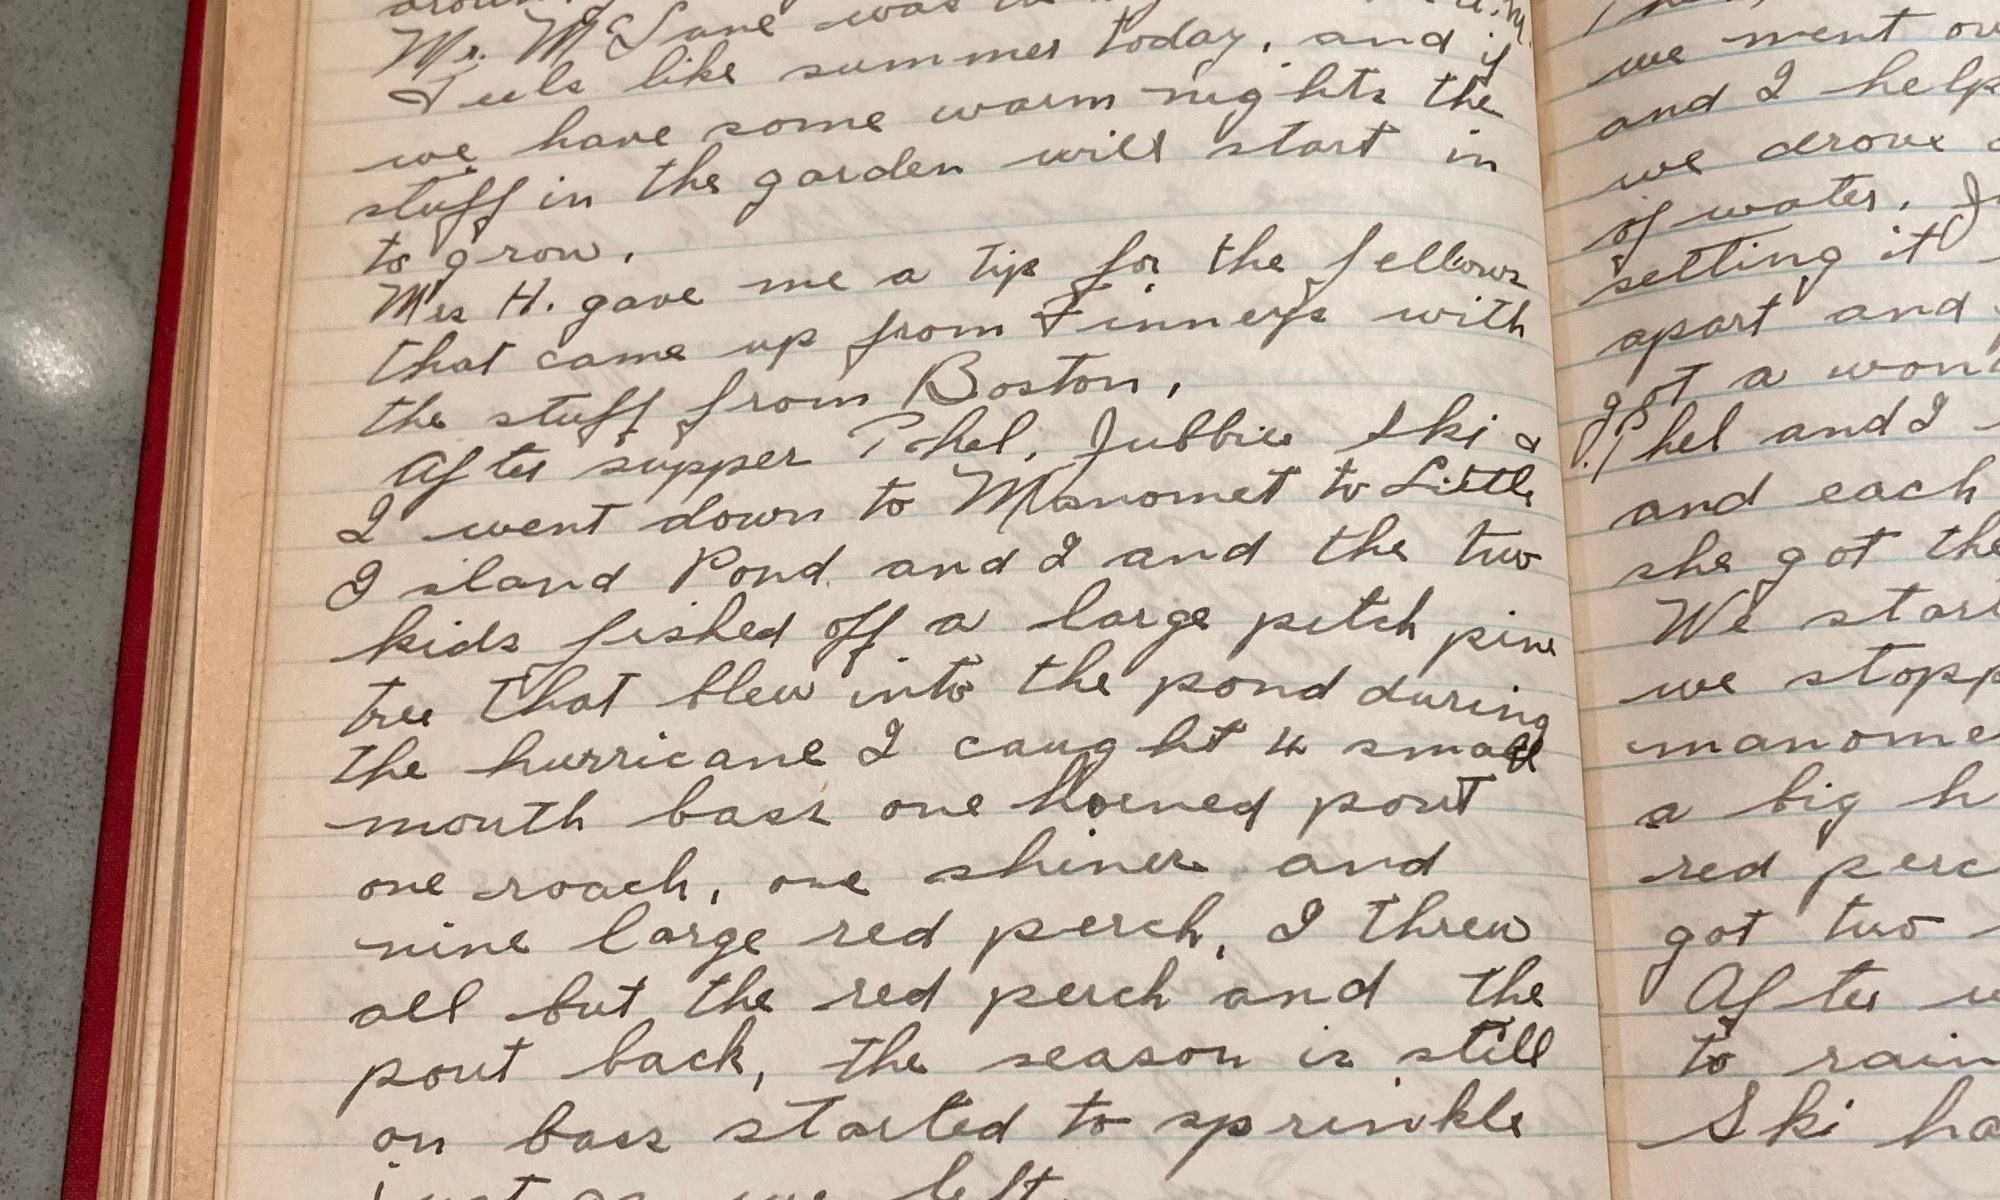 Mr. McLane was in
Feels like summer today, and if
we have some warm nights the
stuff in the garden will start in
to grow.
Mrs H. gave me a tip for the fellows
that came up from Finneys with
the stuff from Boston.
After supper Phel, Jubbie Ski &
I went down to Manomet to Little
Island Pond and I and the two
kids fished off a large pitch pine
tree that blew into the pond during
the hurricane I caught 4 small
mouth bass one horned pout
one roach, one shiner and
nine large red perch, I threw
all but the red perch and the
pout back, the season is still
on bass started to sprinkle
just as we left.
we went
and I help
we drove
of water.
setting it
apart and
got a
Phel and I
and each
she got the
We
we
a big
red
got two
After
to rain
Ski